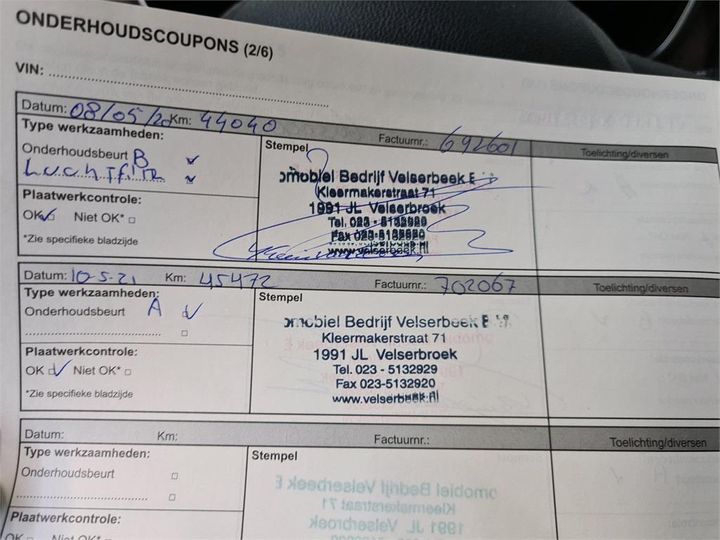 ONDERHOUDSCOUPONS (2/6)
VIN:
Datum: 08/05/20 Km: 44040 Factuurnr.: 692601 Toelichting/diversen
Type werkzaamheden:
Onderhoudsbeurt B
Luchtfilter
Plaatwerkcontrole:
OK Niet OK*
*Zie specifieke bladzijde
Stempel
omobiel Bedrijf Velserbeek B
Kleermakerstraat 71
1991 JL Velserbroek
Tel. 023 - 5132929
Fax 023-5132920
www.velserbeek.nl
Datum: 10-5-21 Km: 45472 Factuurnr.: 702067 Toelichting/diversen
Type werkzaamheden:
Onderhoudsbeurt A
Plaatwerkcontrole:
OK Niet OK*
*Zie specifieke bladzijde
Stempel
omobiel Bedrijf Velserbeek B
Kleermakerstraat 71
1991 JL Velserbroek
Tel. 023 - 5132929
Fax 023-5132920
www.velserbeek.nl
Datum: Km: Factuurnr.: Toelichting/diversen
Type werkzaamheden:
Onderhoudsbeurt
Plaatwerkcontrole:
OK Niet OK*
Stempel